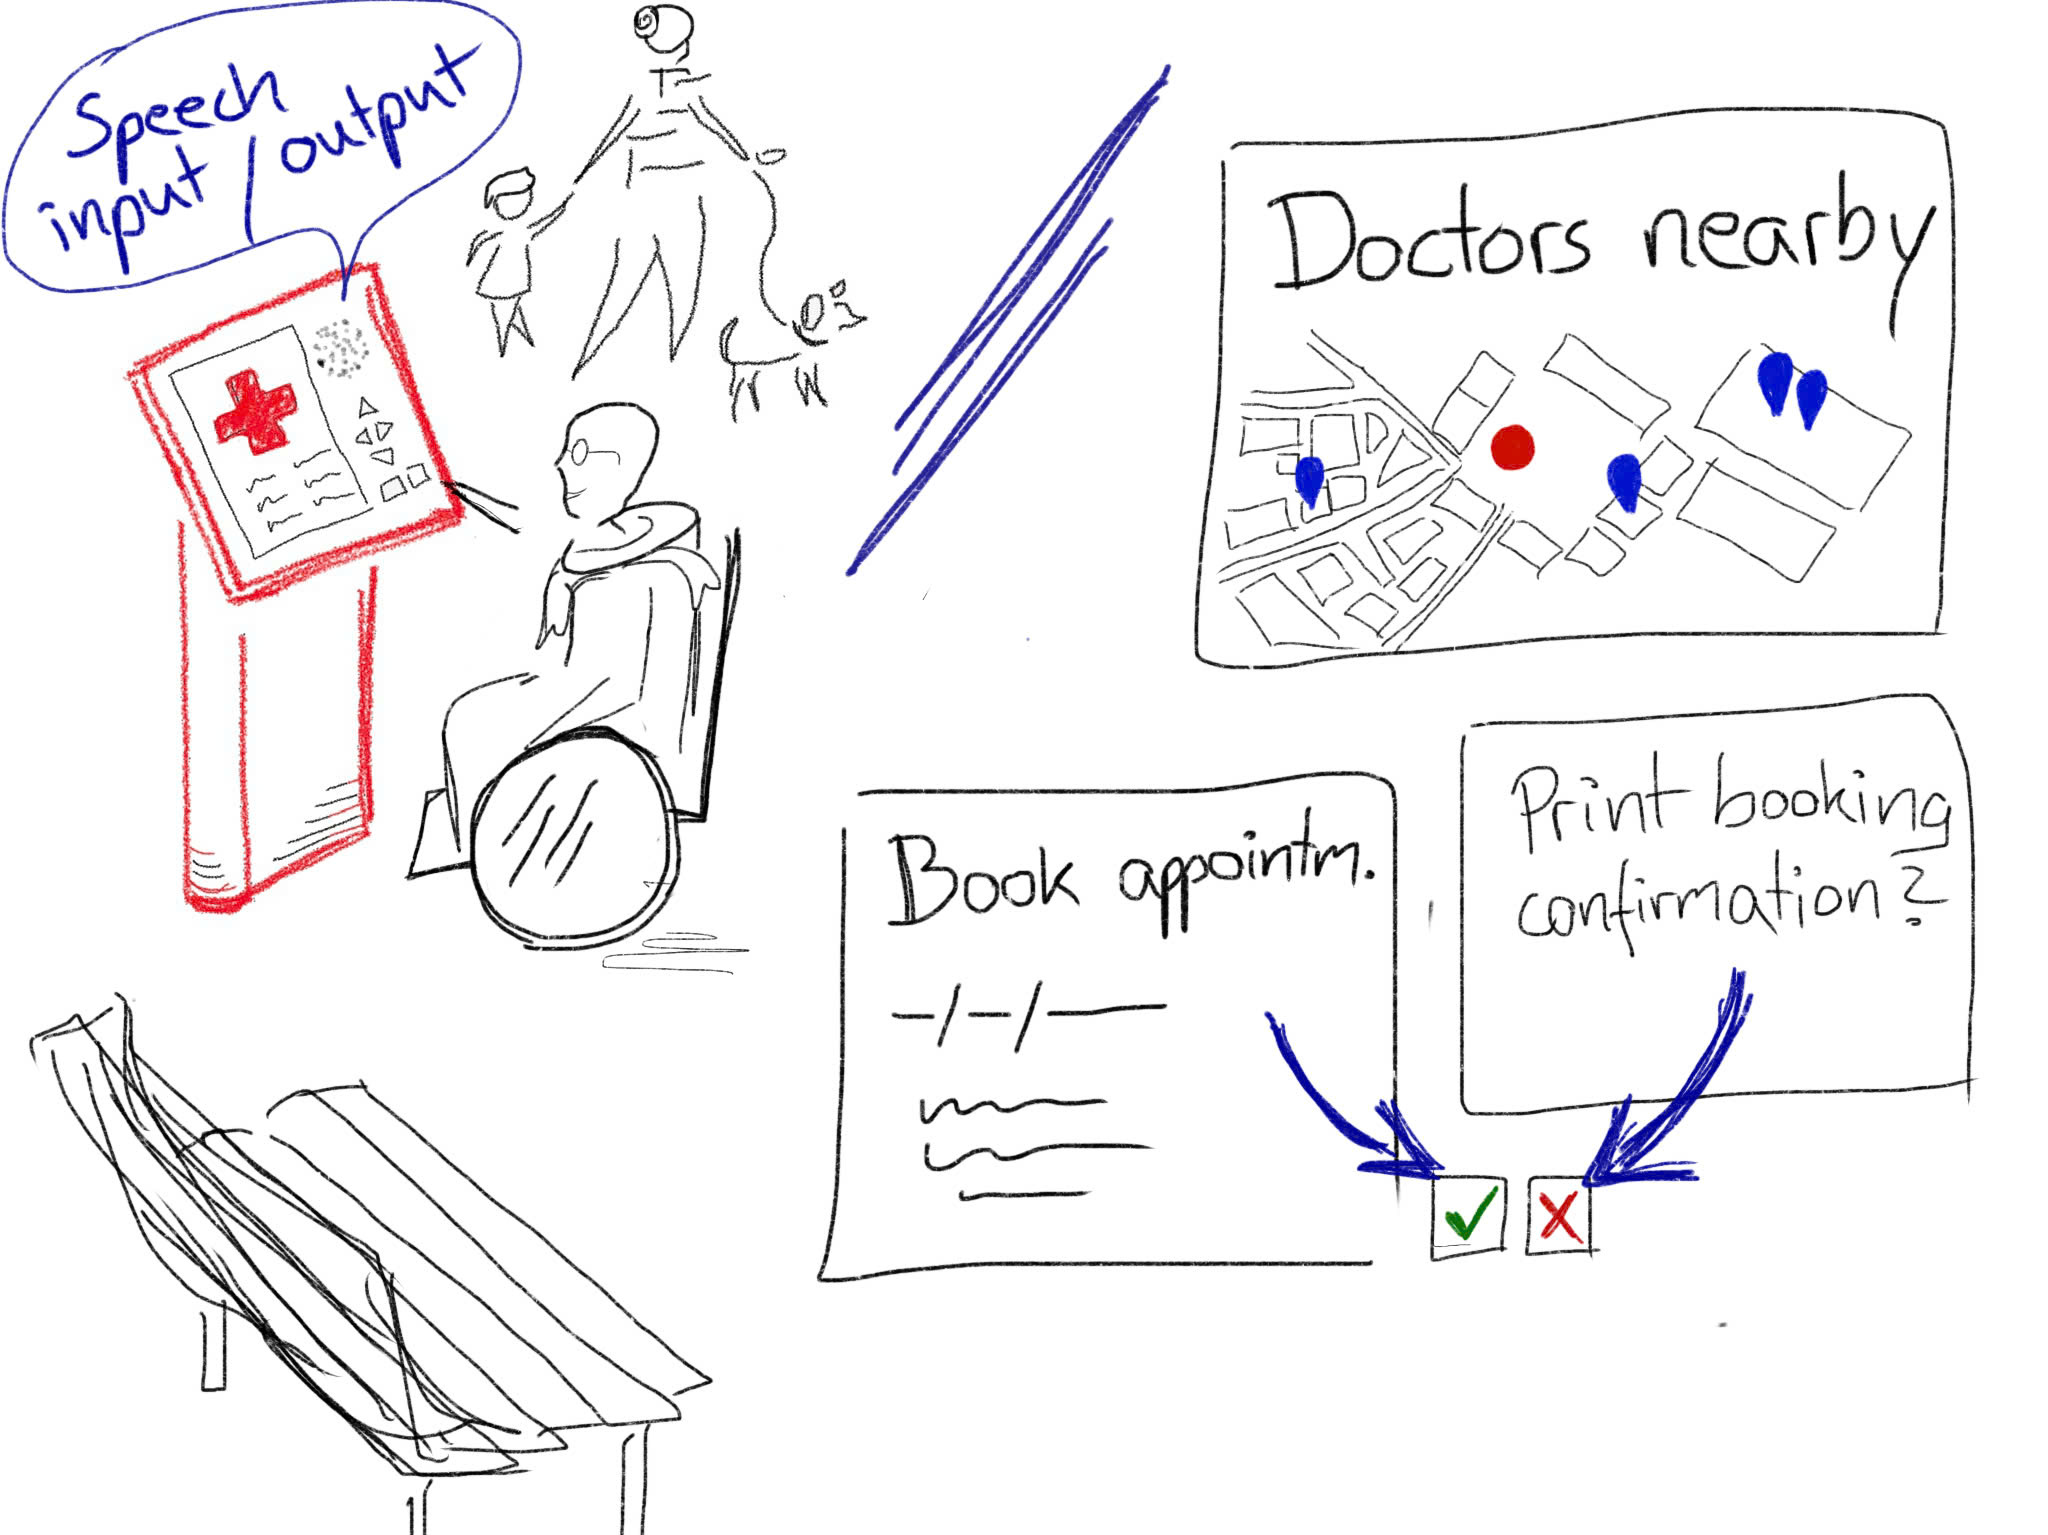 Speech
input/output
Doctors nearby
Book appointm.
Print booking
confirmation?